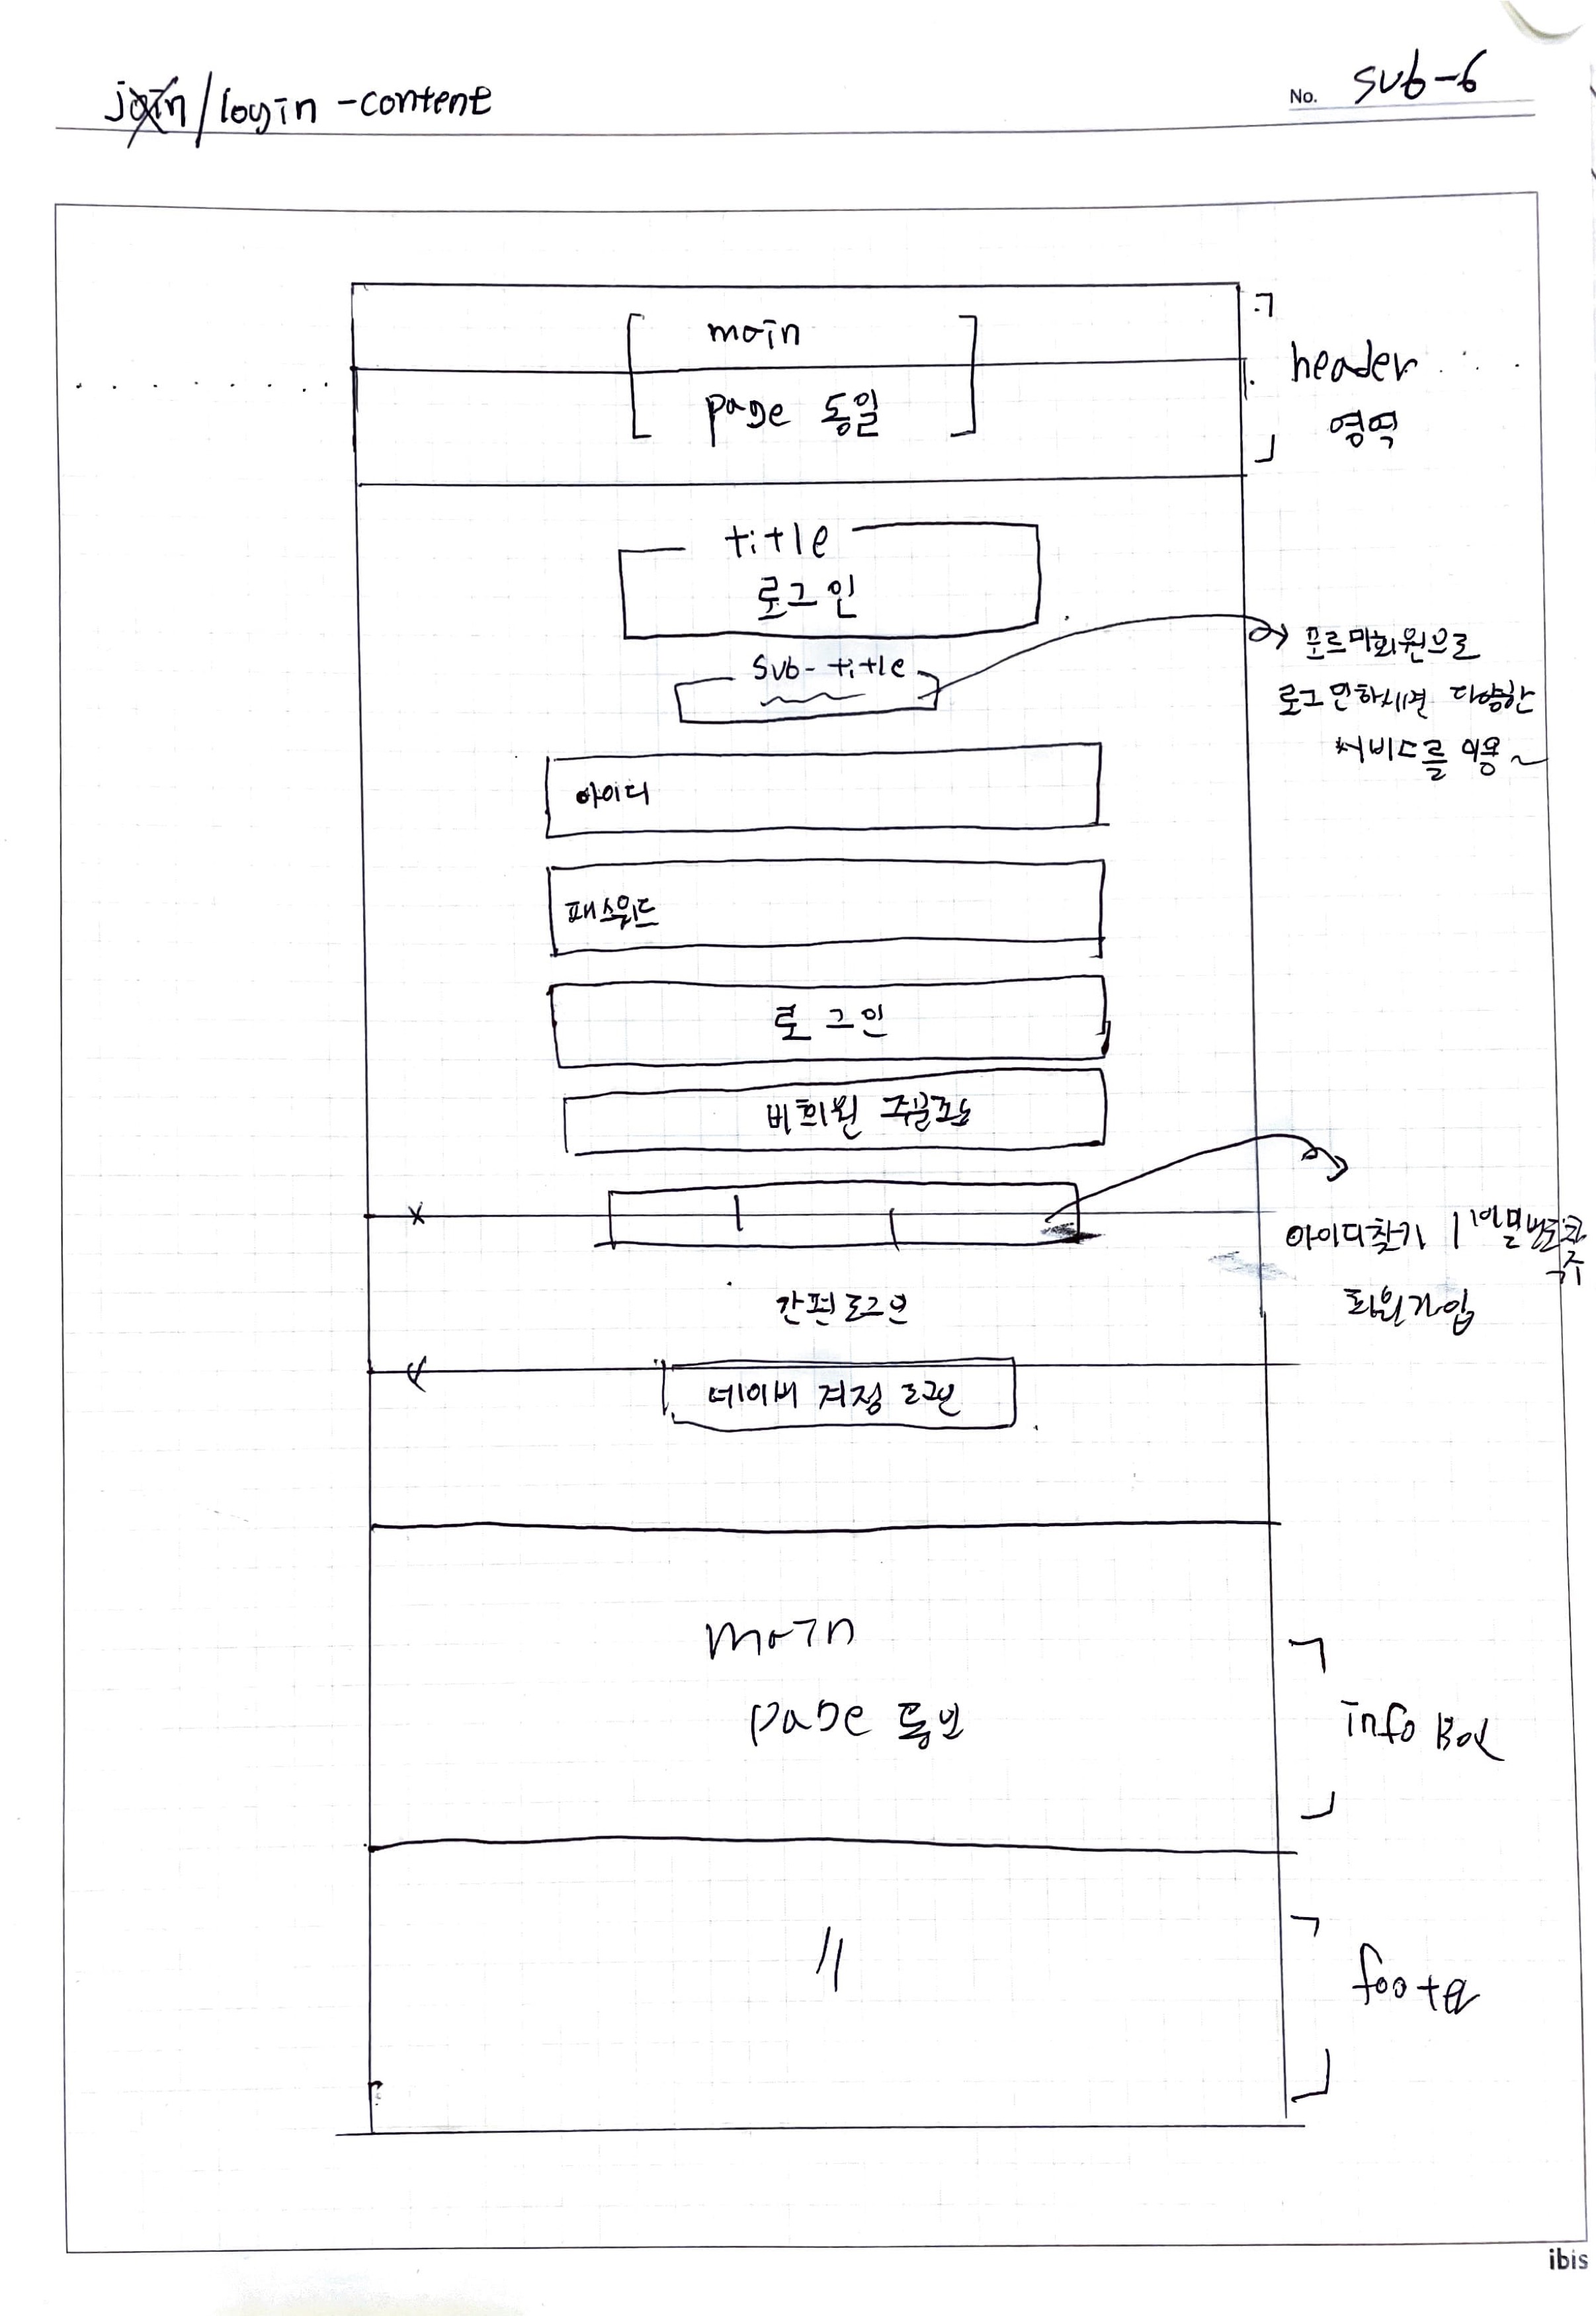 join/login -content
No. sub-6
main
page 동일
header
영역
title
로그인
sub-title
포르마회원으로
로그인하시면 다양한
서비스를 이용~
아이디
패스워드
로그인
비회원 주문조회
아이디찾기 | 비밀번호찾기
회원가입
간편로그인
네이버 계정 로그인
main
page 동일
info Box
〃
footer
ibis